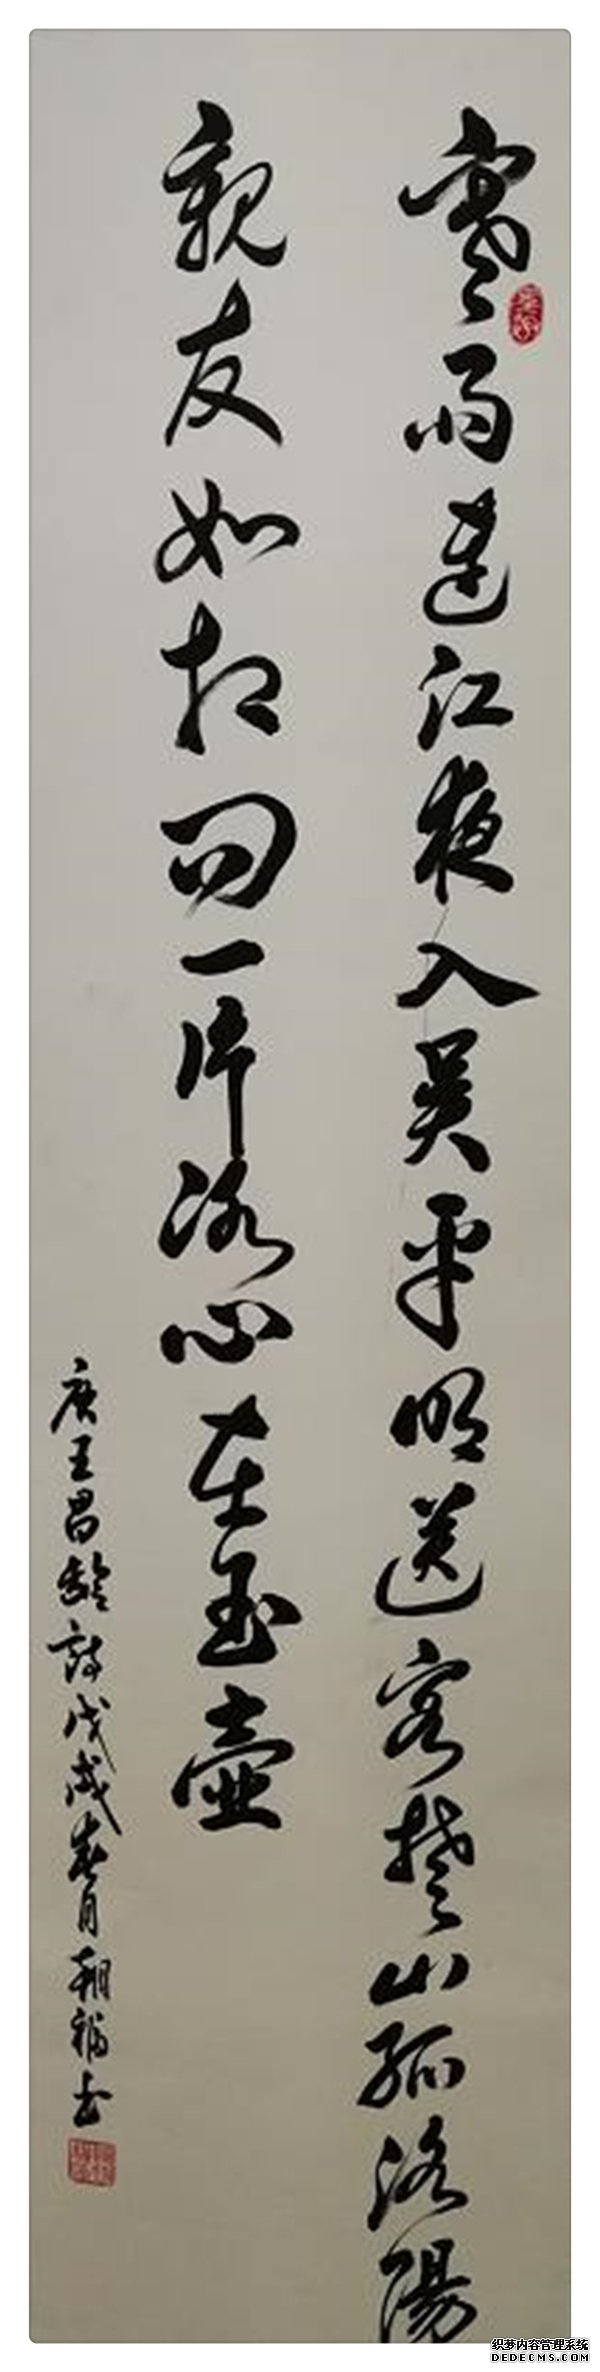 寒雨连江夜入吴平明送客楚山孤洛陽
親友如相问一片冰心在玉壶
唐王昌龄诗戊戌春月翔福书
织梦内容管理系统
DEDECMS.COM